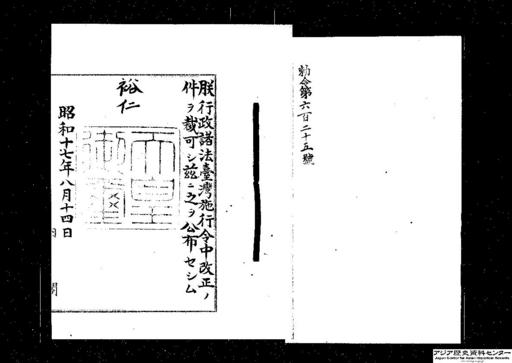 勅令第六百二十五號
朕行政諸法臺灣施行令中改正ノ
件ヲ裁可シ茲ニ之ヲ公布セシム
裕仁
天皇御璽
昭和十七年八月十四日
内閣
アジア歴史資料センター
Japan Center for Asian Historical Records